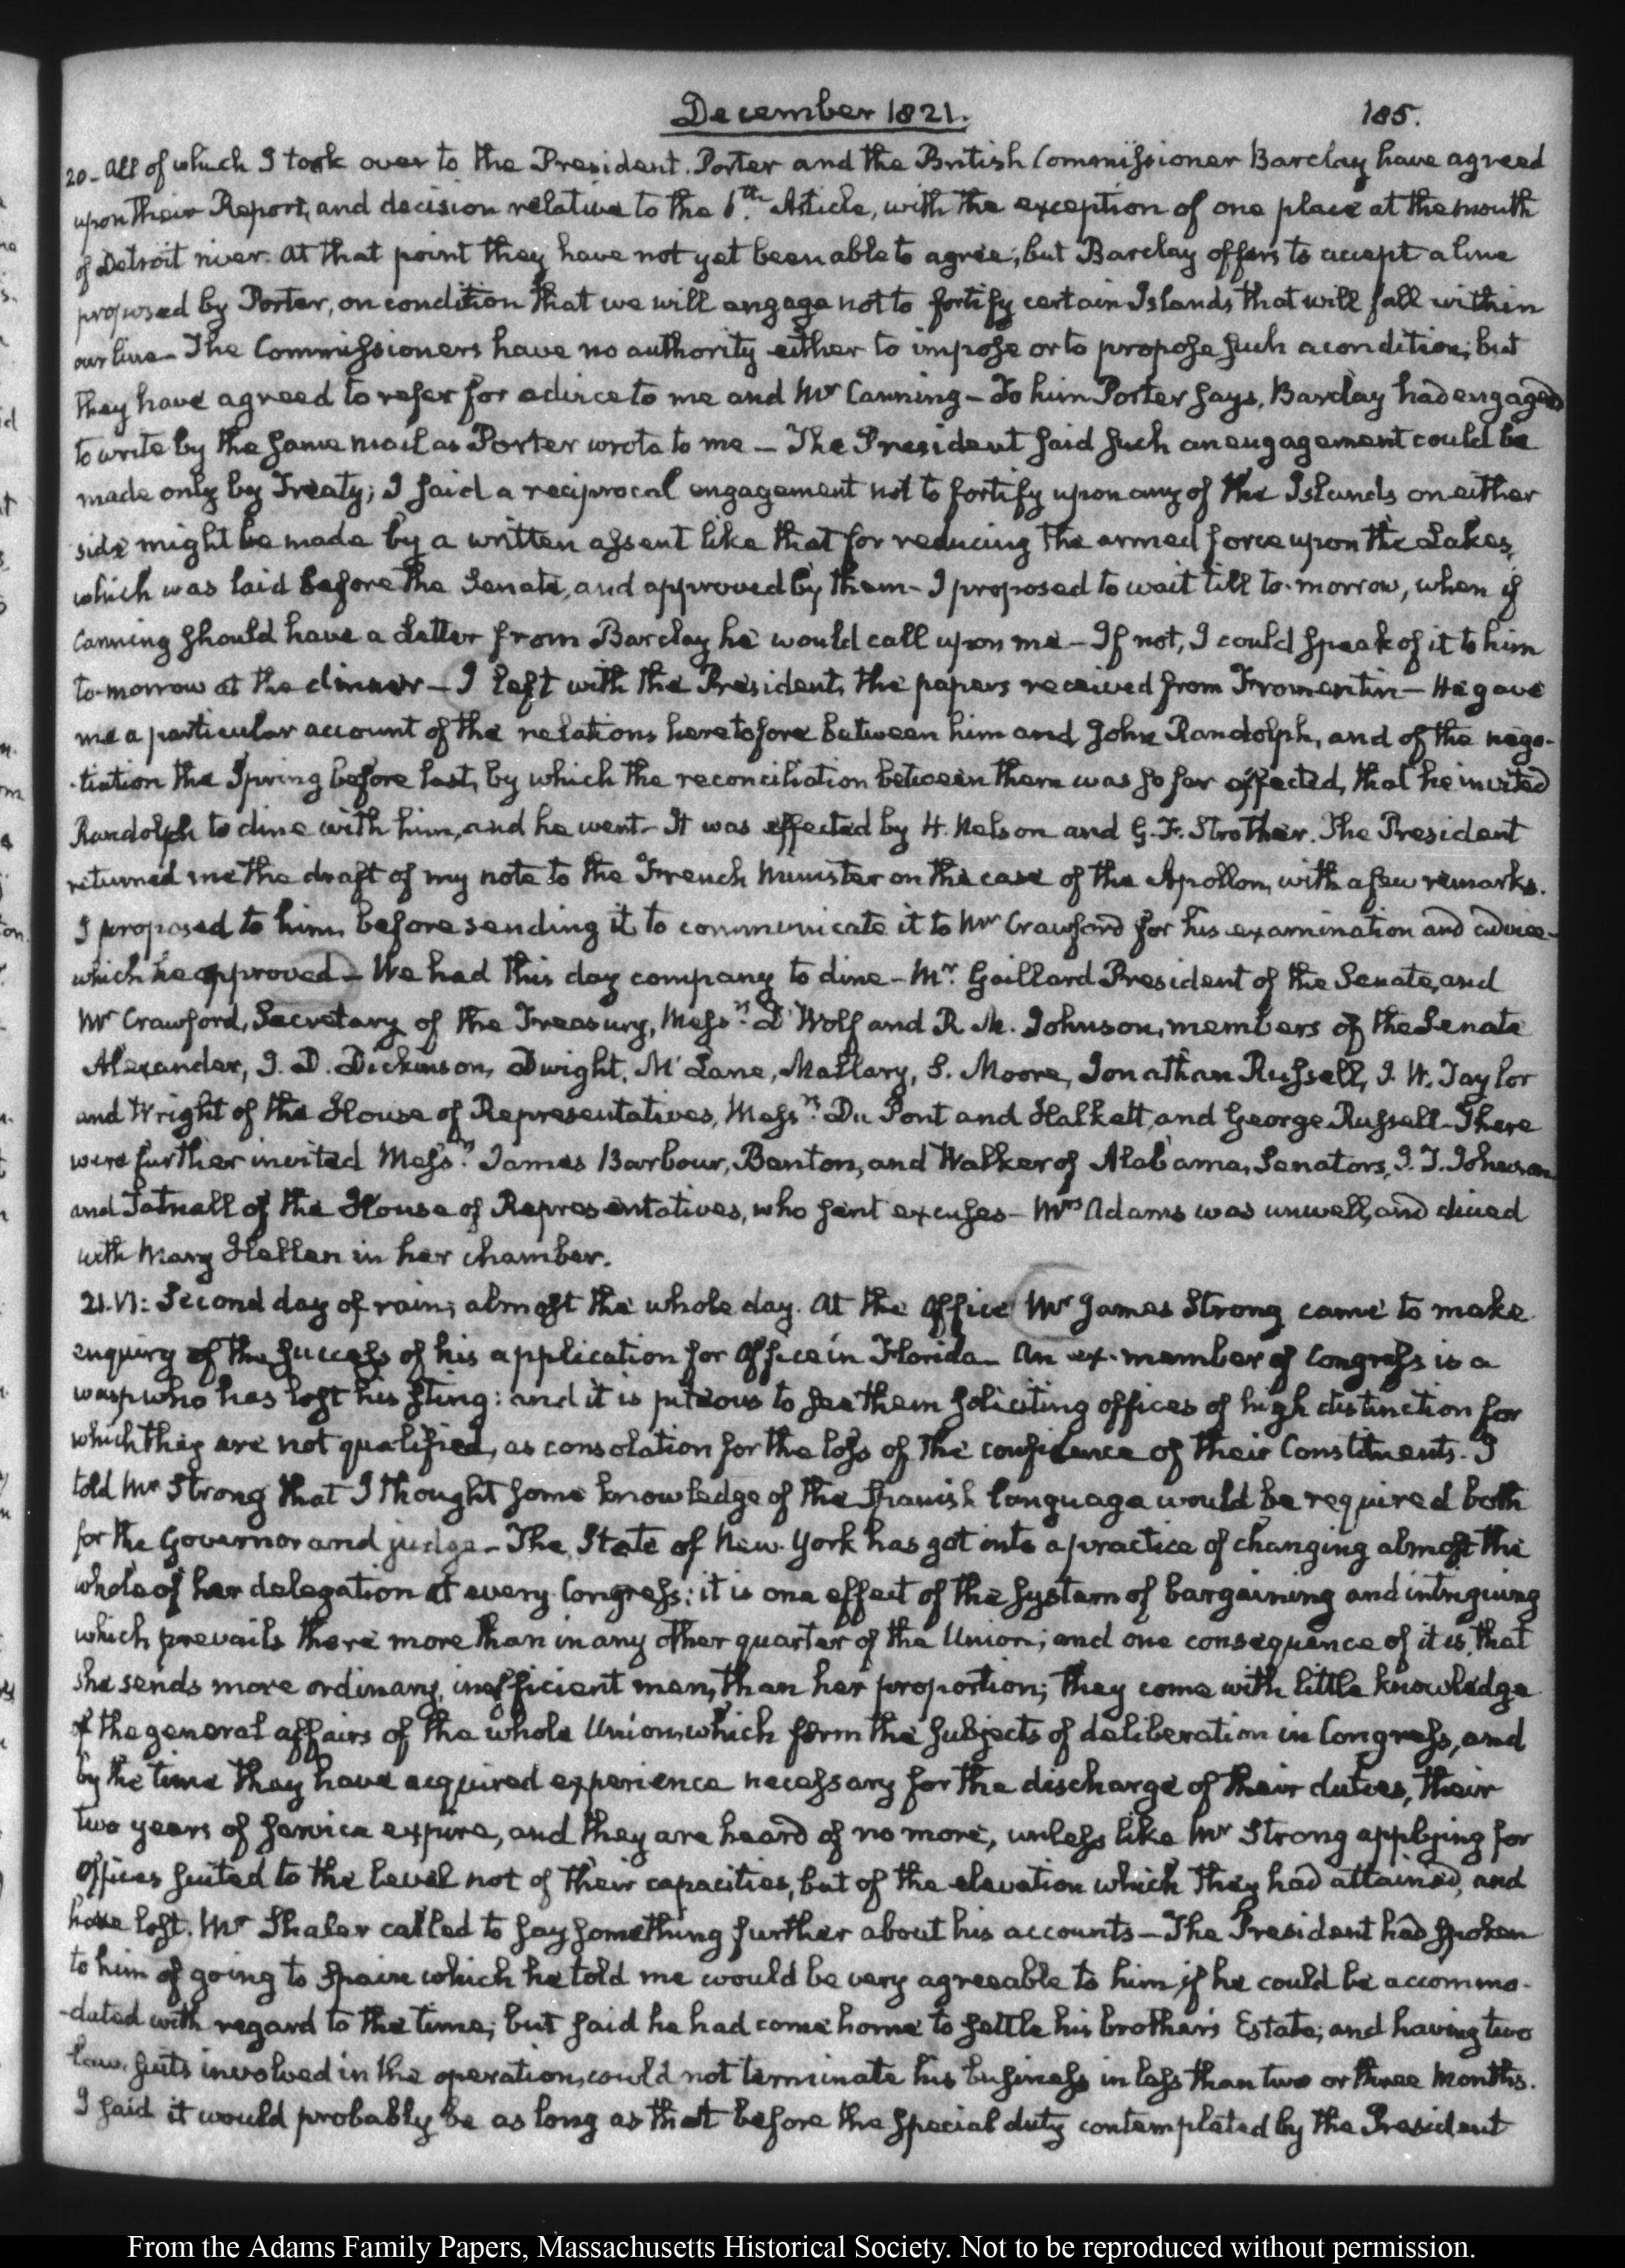 December 1821.
185.
20 - All of which I took over to the President. Porter and the British Commissioner Barclay have agreed
upon their Report, and decision relative to the 6.th Article, with the exception of one place at the mouth
of Detroit river. At that point they have not yet been able to agree; but Barclay offers to accept a line
proposed by Porter, on condition that we will engage not to fortify certain Islands that will fall within
our line - The Commissioners have no authority either to impose or to propose such a condition; but
they have agreed to refer for advice to me and Mr Canning - To him Porter says, Barclay had engaged
to write by the same mail as Porter wrote to me - The President said such an engagement could be
made only by Treaty; I said a reciprocal engagement not to fortify upon any of the Islands on either
side might be made by a written assent like that for reducing the armed force upon the Lakes,
which was laid before the Senate, and approved by them - I proposed to wait till to-morrow, when if
Canning should have a Letter from Barclay he would call upon me - If not, I could speak of it to him
to-morrow at the dinner - I left with the President, the papers received from Fromentin - He gave
me a particular account of the relations heretofore between him and John Randolph, and of the nego-
-tiation the Spring before last, by which the reconciliation between them was so far effected, that he invited
Randolph to dine with him, and he went - It was effected by H. Nelson and G. F. Strother. The President
returned me the draft of my note to the French Minister on the case of the Apollon, with a few remarks.
I proposed to him before sending it, to communicate it to Mr Crawford for his examination and advice -
which he approved - We had this day company to dine - Mr. Gaillard President of the Senate, and
Mr Crawford, Secretary of the Treasury, Messrs. D'Wolf and R. M. Johnson, members of the Senate
Alexander, J. D. Dickinson, Dwight, McLane, Mallary, S. Moore, Jonathan Russell, J. W. Taylor
and Wright of the House of Representatives, Messrs. Du Pont and Halkett, and George Russell - There
were further invited Messrs. James Barbour, Benton, and Walker of Alabama, Senators, J. T. Johnson
and Tatnall of the House of Representatives, who sent excuses - Mrs Adams was unwell, and dined
with Mary Hellen in her chamber.
21. VI: Second day of rain; almost the whole day. At the Office Mr James Strong came to make
enquiry of the success of his application for Office in Florida - An ex-member of Congress is a
wasp who has lost his sting: and it is piteous to see them soliciting offices of high distinction for
which they are not qualified, as consolation for the loss of the confidence of their Constituents. I
told Mr Strong that I thought some knowledge of the Spanish language would be required both
for the Governor and judge - The State of New-York has got into a practice of changing almost the
whole of her delegation at every Congress: it is one effect of the system of bargaining and intriguing
which prevails there more than in any other quarter of the Union; and one consequence of it is, that
she sends more ordinary, inefficient men, than her proportion; they come with little knowledge
of the general affairs of the whole Union, which form the subjects of deliberation in Congress, and
by the time they have acquired experience necessary for the discharge of their duties, their
two years of service expire, and they are heard of no more, unless like Mr Strong applying for
Offices suited to the level not of their capacities, but of the elevation which they had attained, and
have lost. Mr Shaler called to say something further about his accounts - The President had spoken
to him of going to Spain which he told me would be very agreeable to him, if he could be accommo-
-dated with regard to the time; but said he had come home to settle his brother's Estate; and having two
law-suits involved in the operation, could not terminate his business in less than two or three Months.
I said it would probably be as long as that before the special duty contemplated by the President
From the Adams Family Papers, Massachusetts Historical Society. Not to be reproduced without permission.